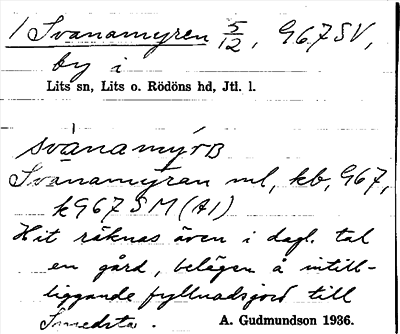 1 Svanamyren 5/12, 967SV,
by i
Lits sn, Lits o. Rödöns hd, Jtl. l.
svànamýrB
Svanamyran ml, kb, 967,
k967SM(A1)
Hit räknas även i dagl. tal
en gård, belägen å intill-
liggande fyllnadsjord till
Smedsta.
A. Gudmundson 1936.